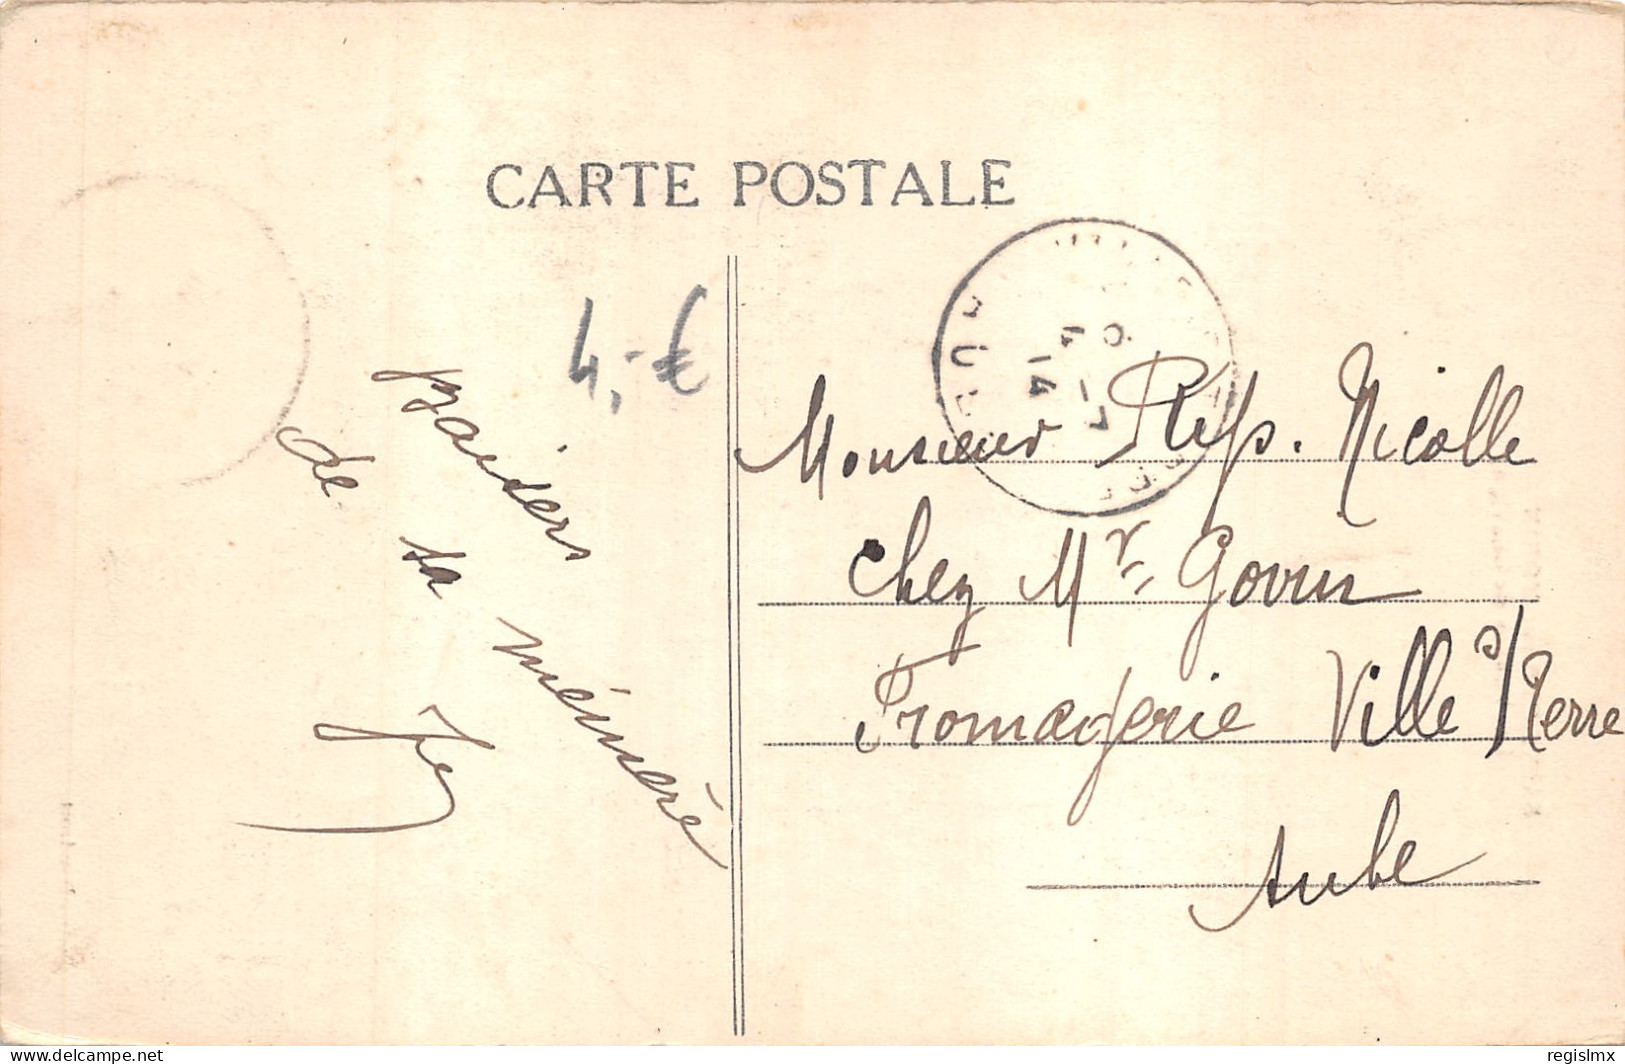 CARTE POSTALE
4,-€
baisers
de ta mémère
Monsieur Nicolle
chez Mr. Govin
Fromagerie Ville s/Terre
Aube
14
delcampe.net
regislmx